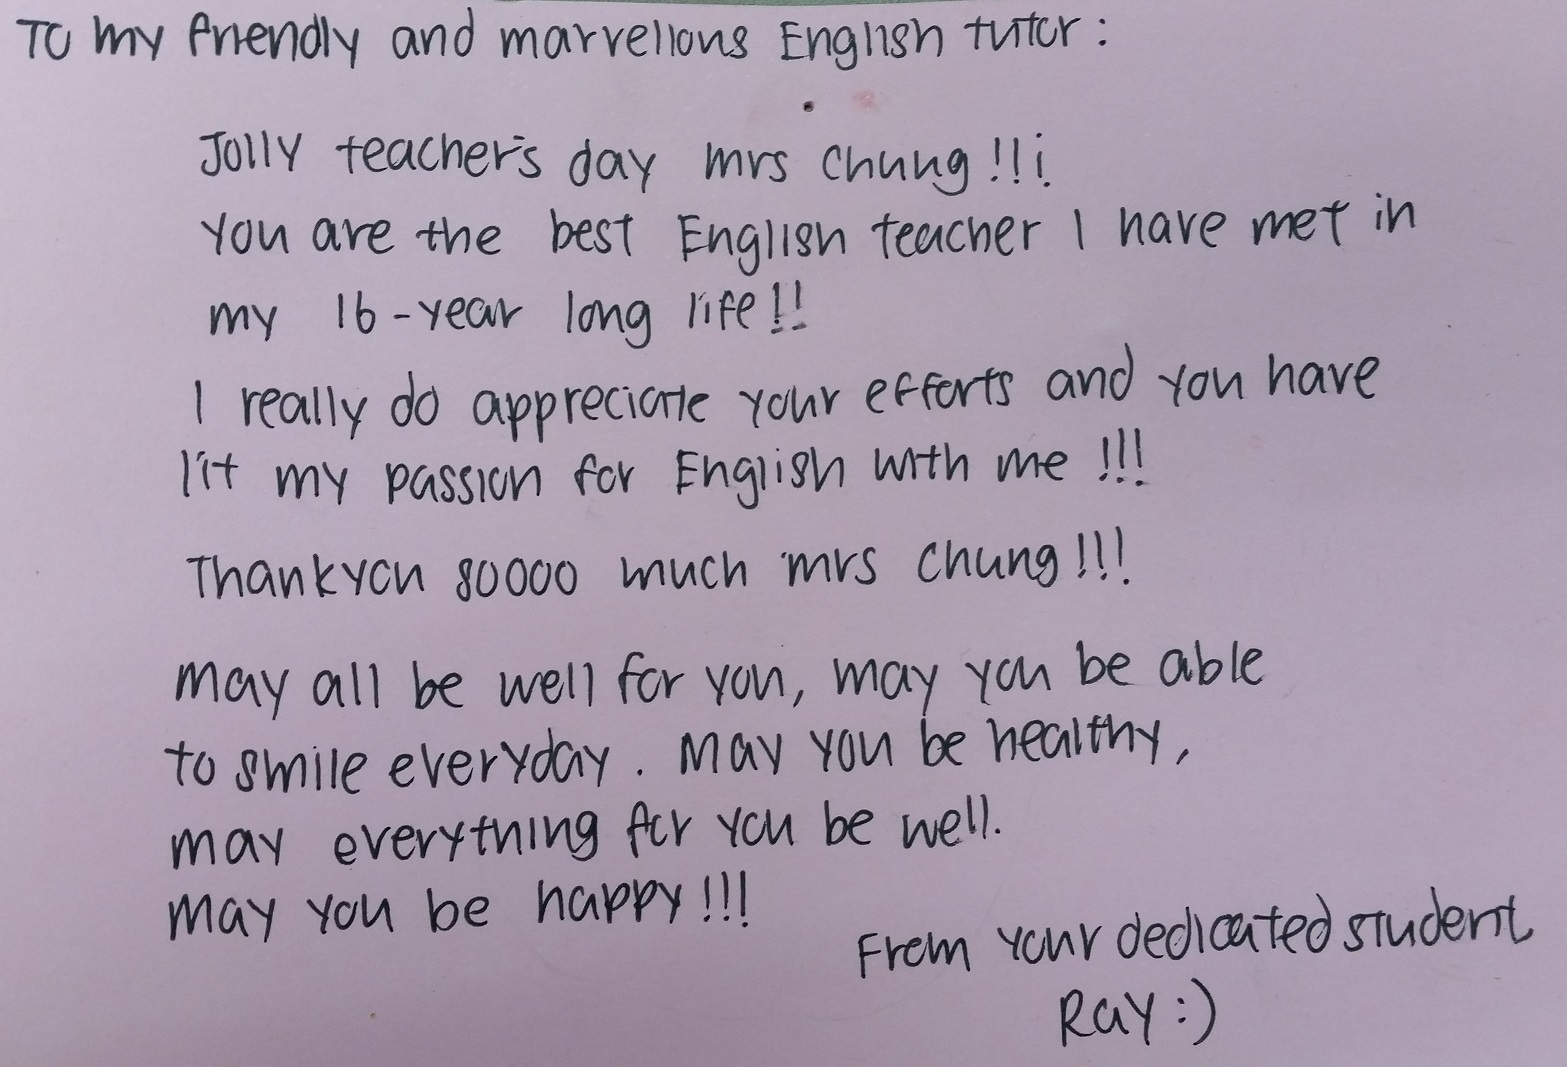 To my friendly and marvellous English tutor:
Jolly teacher's day mrs Chung!!¡
You are the best English teacher I have met in
my 16-year long life!!
I really do appreciate your efforts and you have
lit my passion for English with me !!!
Thankyou soooo much mrs Chung!!!
may all be well for you, may you be able
to smile everyday. May you be healthy,
may everything for you be well.
May you be happy!!!
From your dedicated student
Ray:)